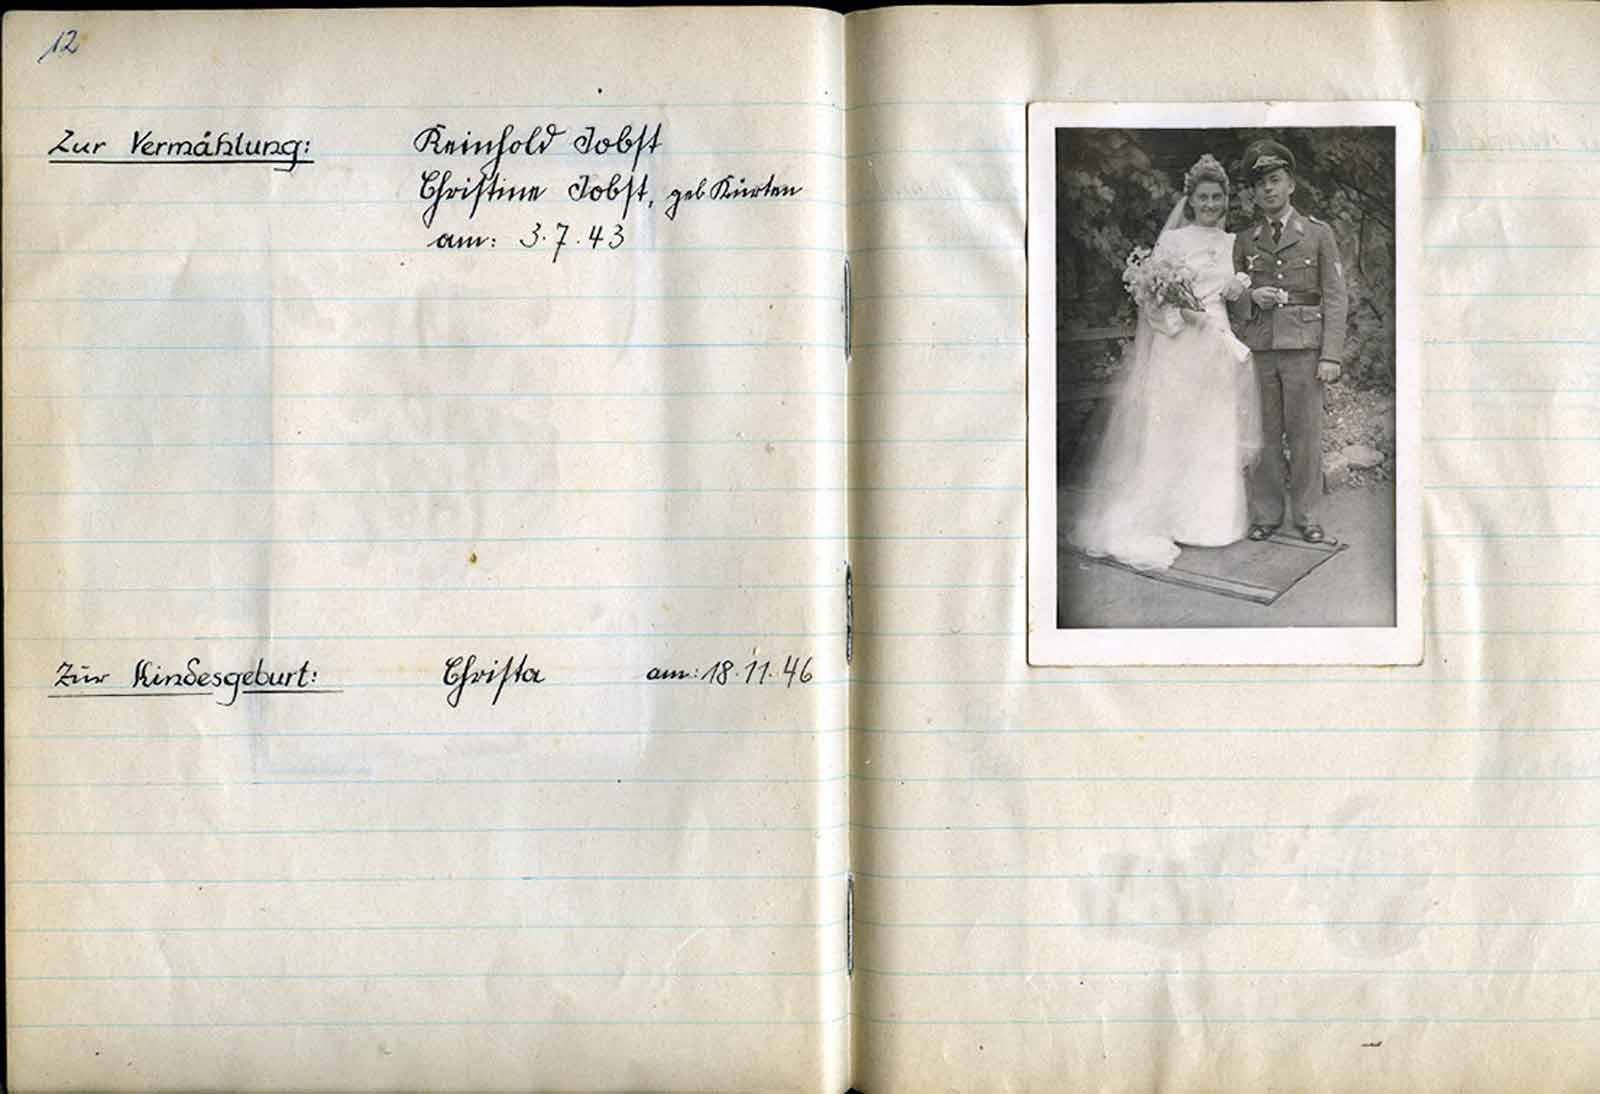 12
Zur Vermählung: Reinhold Jobst
Christine Jobst, geb Kürten
am: 3.7.43
Zur Kindesgeburt: Christa am: 18.11.46